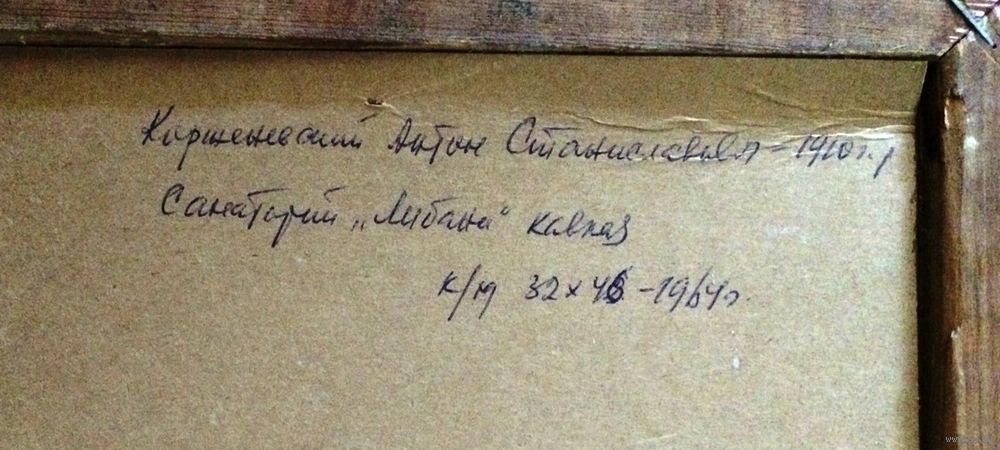 Корженевский Антон Станиславович - 1910 г.р
Санаторий „Либани" Кавказ
к/м 32х46 - 1964г.